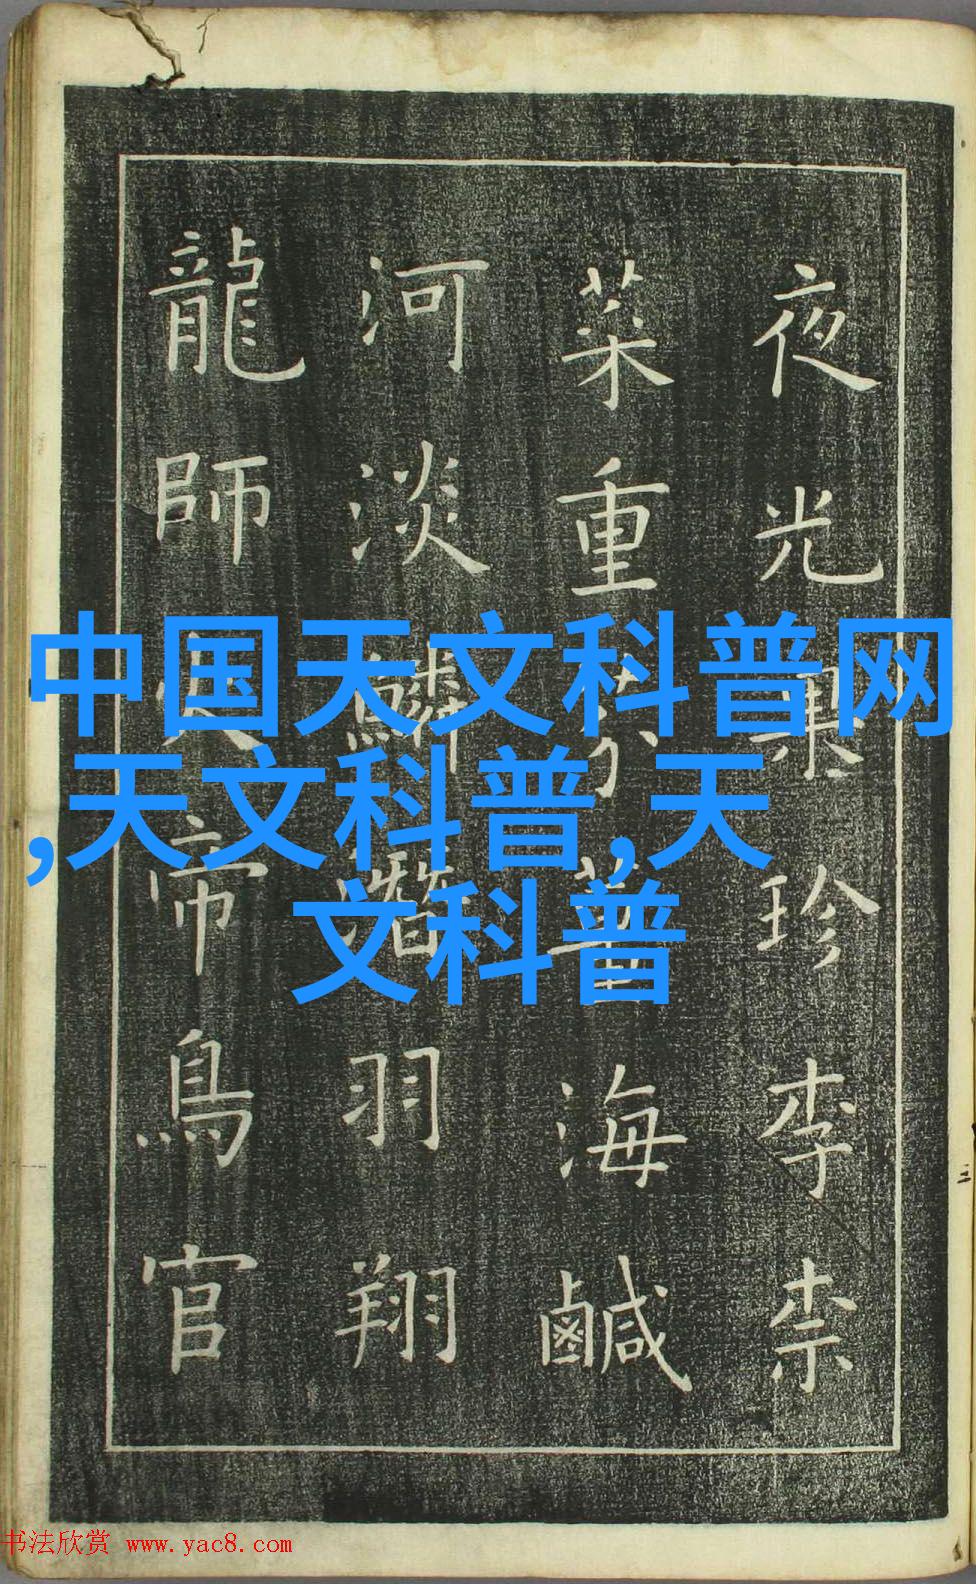 夜光果珍李柰
菜重芥薑海鹹
河淡鱗潛羽翔
龍師火帝鳥官
中国天文科普网
,天文科普,天
文科普
书法欣赏 www.yac8.com